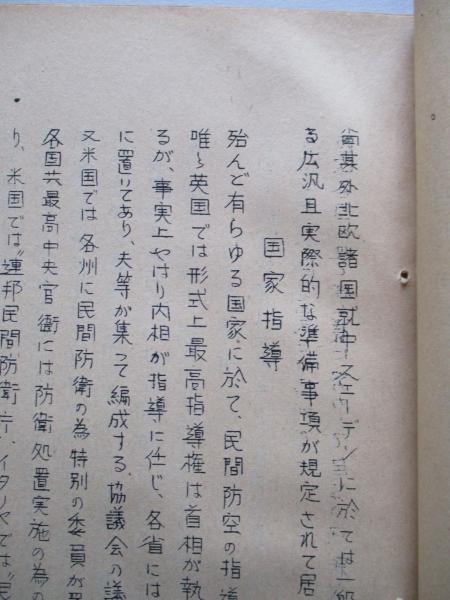 尚其外北欧諸国就中スエーデンに於ては一般
る広汎且実際的な準備事項が規定されて居
国家指導
殆んど有らゆる国家に於て、民間防空の指導
唯々英国では形式上最高指導権は首相が執
るが、事実上やはり内相が指導に任じ、各省には
に置いてあり、夫等が集って編成する、協議会の議
又米国では各州に民間防衛の為特別の委員が
各国共最高中央官衙には防衛処置実施の為の
り、米国では〝連邦民間防衛庁、イタリヤでは〝民